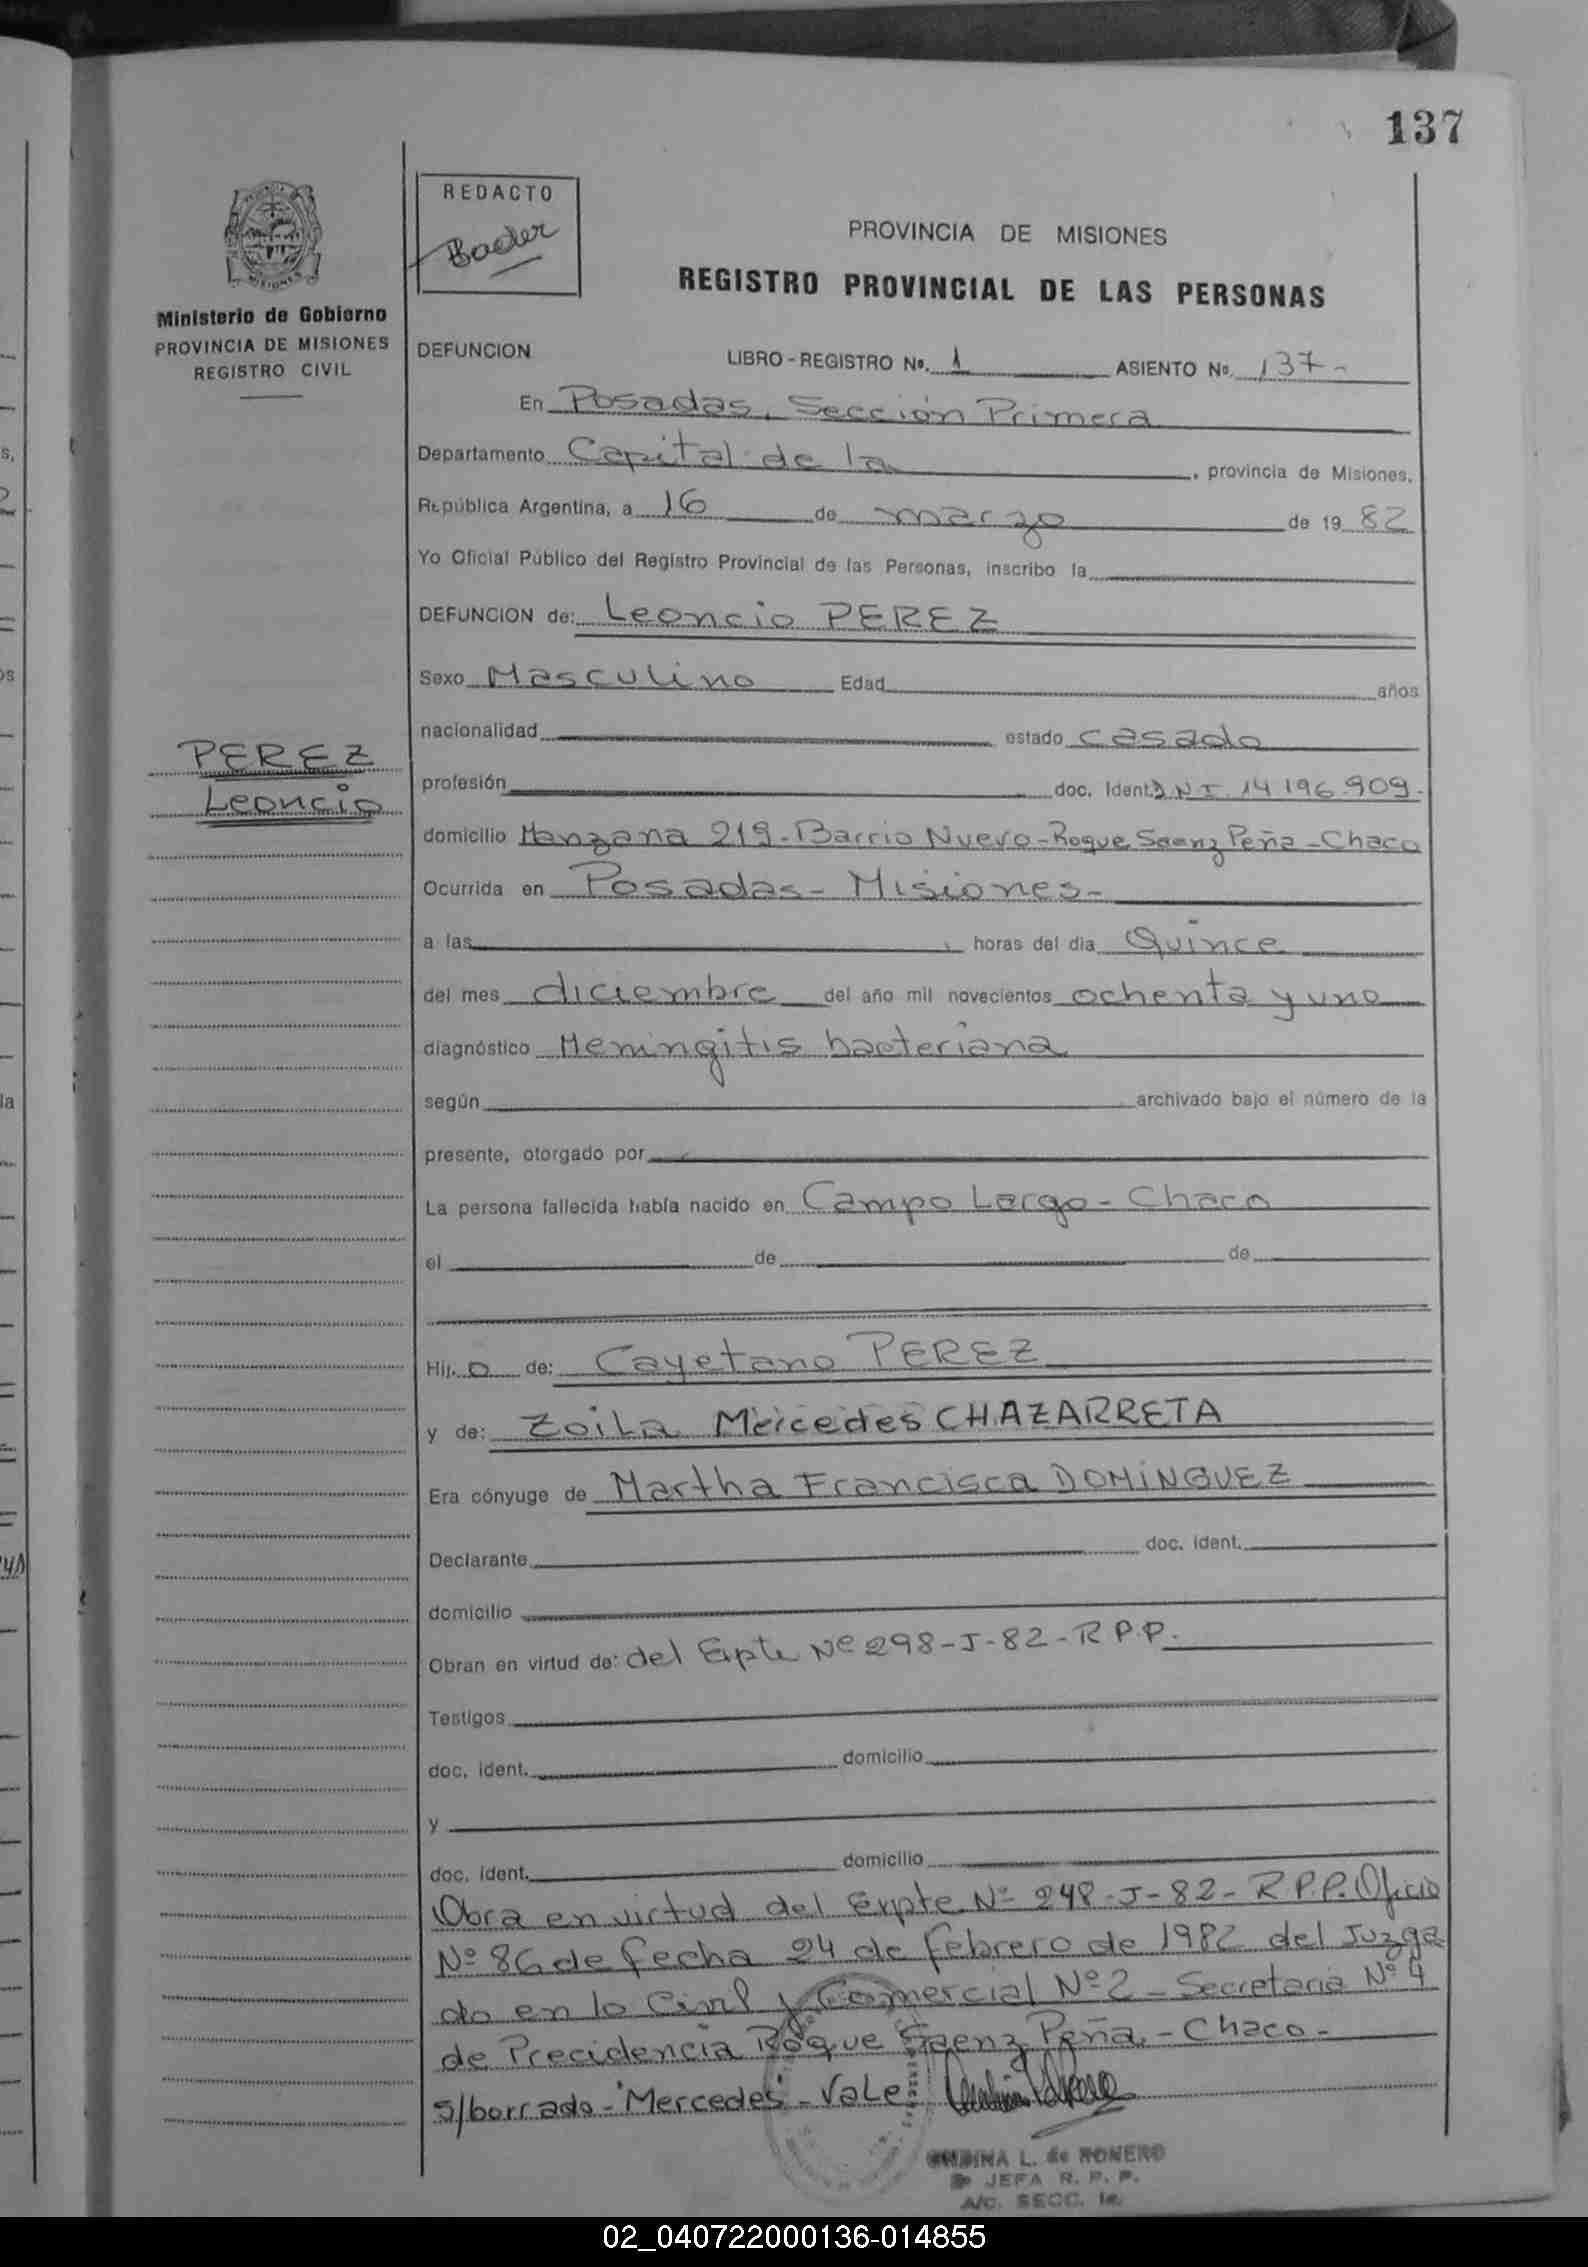 137
REDACTO
Bader
MISIONES
Ministerio de Gobierno
PROVINCIA DE MISIONES
REGISTRO CIVIL
PROVINCIA DE MISIONES
REGISTRO PROVINCIAL DE LAS PERSONAS
DEFUNCION LIBRO-REGISTRO No. 1 ASIENTO No. 137-
En Posadas, Sección Primera
Departamento Capital de la, provincia de Misiones,
República Argentina, a 16 de marzo de 19 82
Yo Oficial Público del Registro Provincial de las Personas, inscribo la
DEFUNCION de: Leoncio PEREZ
Sexo Masculino Edad años
nacionalidad estado casado
PEREZ
Leoncio
profesión doc. Ident. D.N.I. 14 196.909.
domicilio Manzana 219-Barrio Nuevo-Roque Saenz Peña-Chaco
Ocurrida en Posadas-Misiones-
a las horas del día Quince
del mes diciembre del año mil novecientos ochenta y uno
diagnóstico Meningitis bacteriana
según archivado bajo el número de la
presente, otorgado por
La persona fallecida había nacido en Campo Largo-Chaco
el de de
Hij. o de: Cayetano PEREZ
y de: Zoila Mercedes CHAZARRETA
Era cónyuge de Martha Francisca DOMINGUEZ
Declarante doc. ident.
domicilio
Obran en virtud de: del Expte Nº 298-J-82-R.P.P.
Testigos
doc. ident. domicilio
y
doc. ident. domicilio
Obra en virtud del Expte. Nº 248-J-82-R.P.P. Oficio
Nº 86 de fecha 24 de febrero de 1982 del Juzga
do en lo Civil y Comercial Nº 2-Secretaria Nº 4
de Precidencia Roque Saenz Peña-Chaco-
s/borrado-'Mercedes'-Vale
L. de ROMERO
JEFA R. P. P.
A/C. SECC. 1a.
02_040722000136-014855